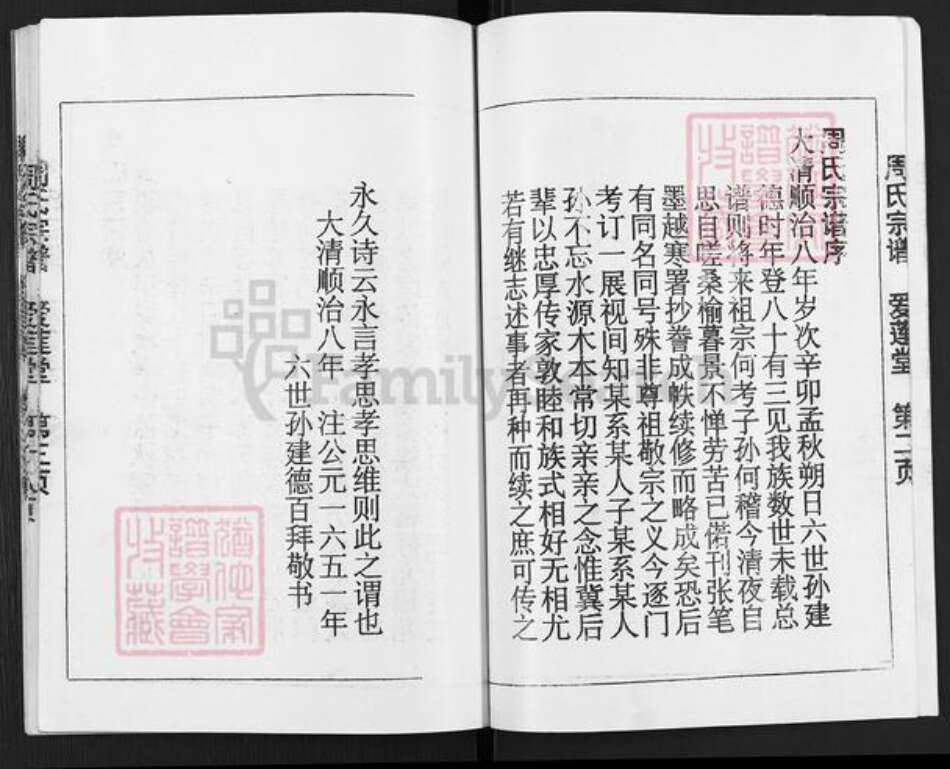 周氏宗谱 爱莲堂 第二页
周氏宗谱序
大清顺治八年岁次辛卯孟秋朔日六世孙建
德时年登八十有三见我族数世未载总
谱则将来祖宗何考子孙何稽今清夜自
思自嗟桑榆暮景不惮劳苦已偌刊张笔
墨越寒署抄誊成帙续修而略成矣恐后
有同名同号殊非尊祖敬宗之义今逐门
考订一展视间知某系某人子某系某人
孙不忘水源木本常切亲亲之念惟冀后
辈以忠厚传家敦睦和族式相好无相尤
若有继志述事者再种而续之庶可传之
永久诗云永言孝思孝思维则此之谓也
大清顺治八年 注公元一六五一年
六世孙建德百拜敬书
周氏宗谱 爱莲堂 第三页
犹他家
谱学会
收藏
FamilySearch